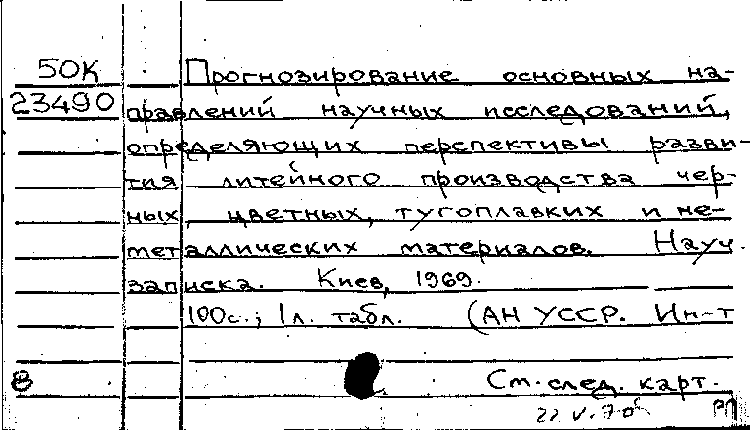 50К Прогнозирование основных на-
23490 правлений научных исследований,
определяющих перспективы разви-
тия литейного производства чер-
ных, цветных, тугоплавких и не-
металлических материалов. Науч.
записка. Киев, 1969.
100с.; 1л. табл. (АН УССР. Ин-т
8 См. след. карт.
22.V.70г РП